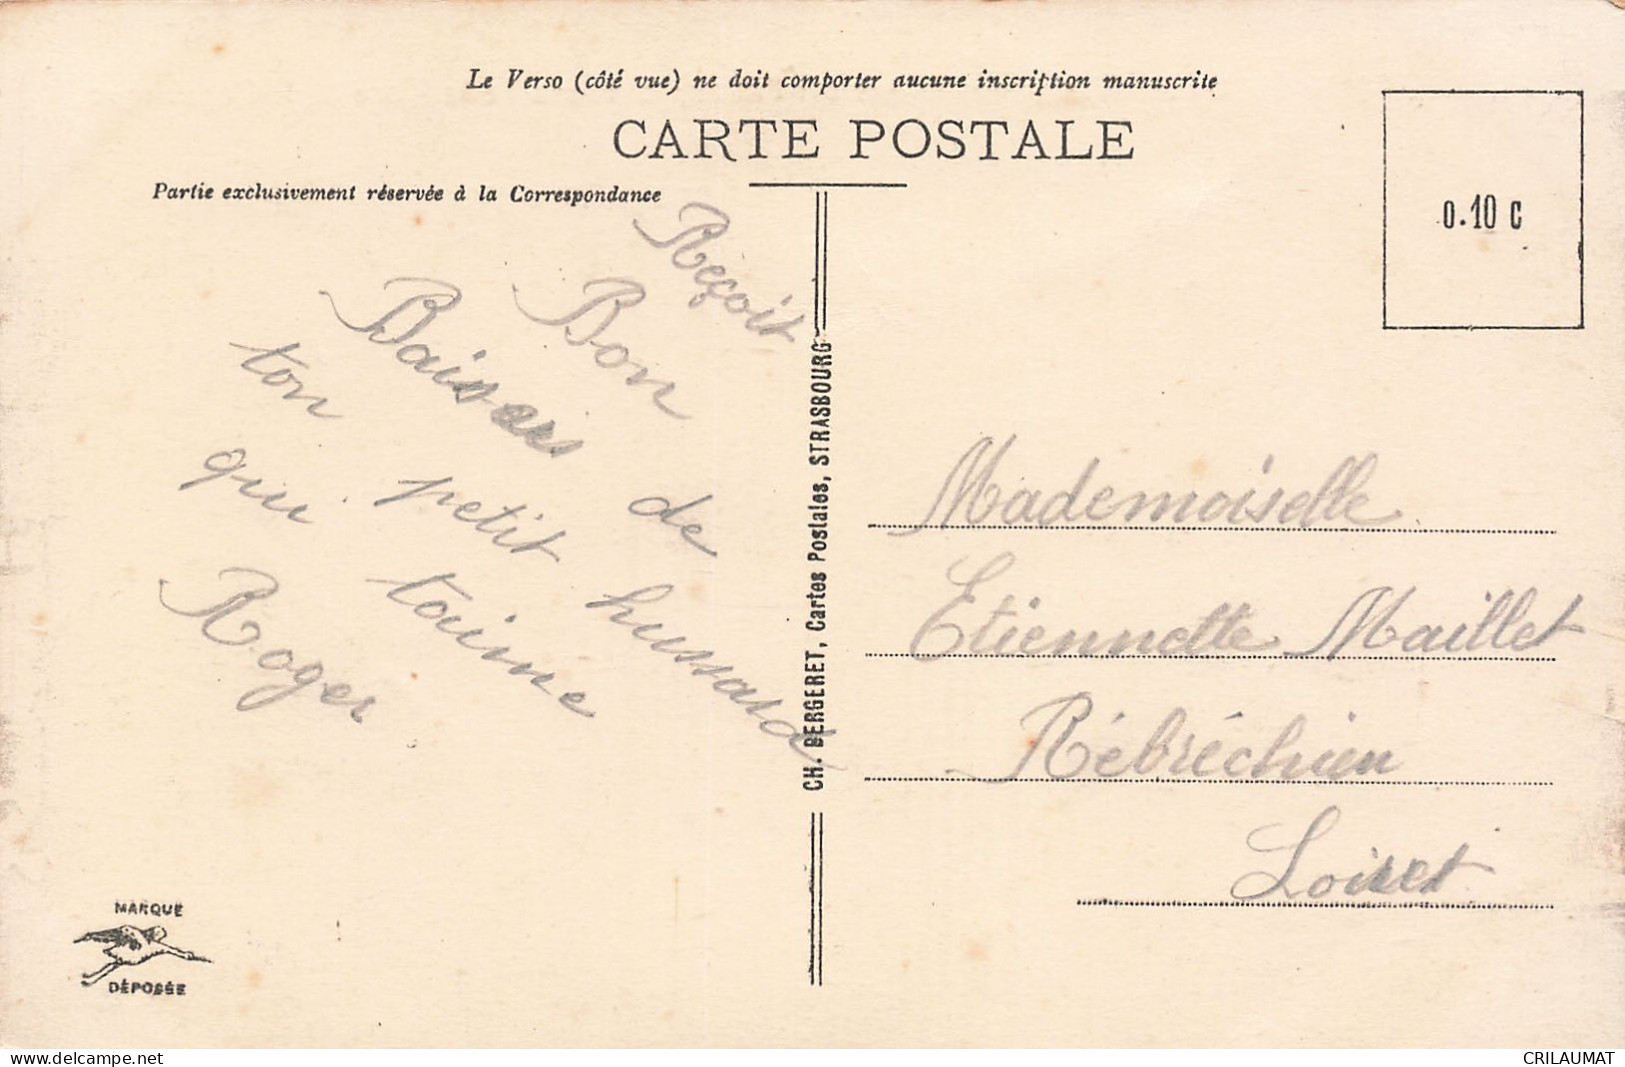 Le Verso (côté vue) ne doit comporter aucune inscription manuscrite
CARTE POSTALE
Partie exclusivement réservée à la Correspondance
0.10 C
Reçoit
Bon
Baisers de
ton petit hussard
qui taime
Roger
CH. BERGERET, Cartes Postales, STRASBOURG
Mademoiselle
Etiennette Maillet
Rébréchien
Loiret
MARQUE
DÉPOSÉE
www.delcampe.net
CRILAUMAT